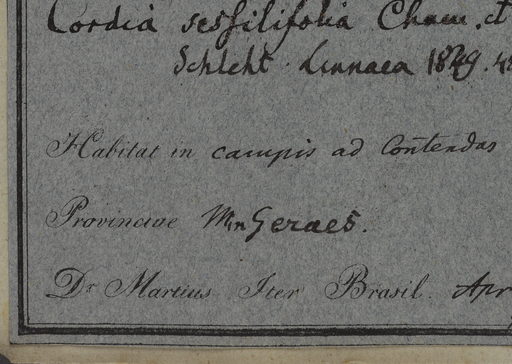 Cordia sessilifolia Cham. et
Schlcht. Linnaea 1829. 4
Habitat in campis ad Contendas
Provinciae Min Geraes.
Dr Martius Iter Brasil. Apr